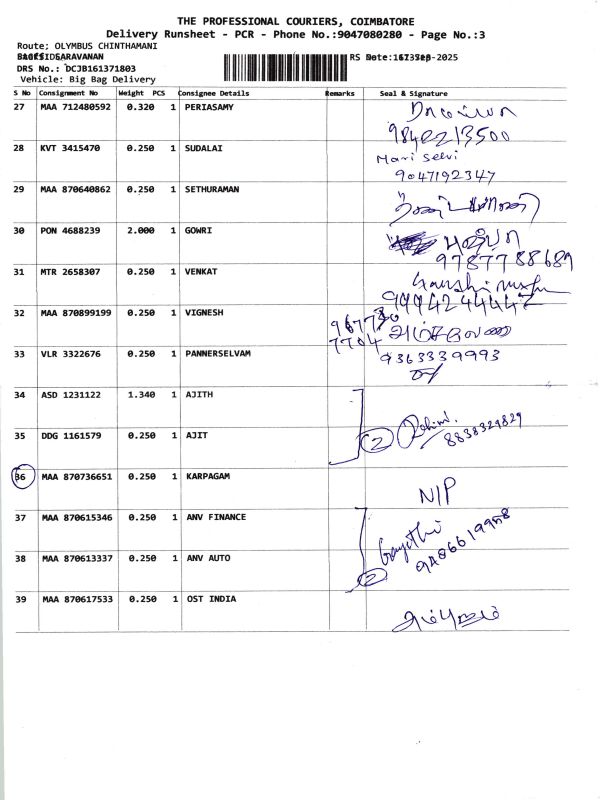 THE PROFESSIONAL COURIERS, COIMBATORE
Delivery Runsheet - PCR - Phone No.:9047080280 - Page No.:3
Route; OLYMBUS CHINTHAMANI
SARAVANAN
DRS No.: DCJB161371803
Vehicle: Big Bag Delivery
S No Consignment No Weight PCS Consignee Details Remarks Seal & Signature
27 MAA 712480592 0.320 1 PERIASAMY
9840213500
28 KVT 3415470 0.250 1 SUDALAI Mari Selvi
9047192347
29 MAA 870640862 0.250 1 SETHURAMAN
30 PON 4688239 2.000 1 GOWRI
9787788689
31 MTR 2658307 0.250 1 VENKAT
9994244442
32 MAA 870899199 0.250 1 VIGNESH
7704
33 VLR 3322676 0.250 1 PANNERSELVAM 9363339993
34 ASD 1231122 1.340 1 AJITH
35 DDG 1161579 0.250 1 AJIT 2
8838329829
36 MAA 870736651 0.250 1 KARPAGAM
N/P
37 MAA 870615346 0.250 1 ANV FINANCE
Gayathi
38 MAA 870613337 0.250 1 ANV AUTO 2
39 MAA 870617533 0.250 1 OST INDIA